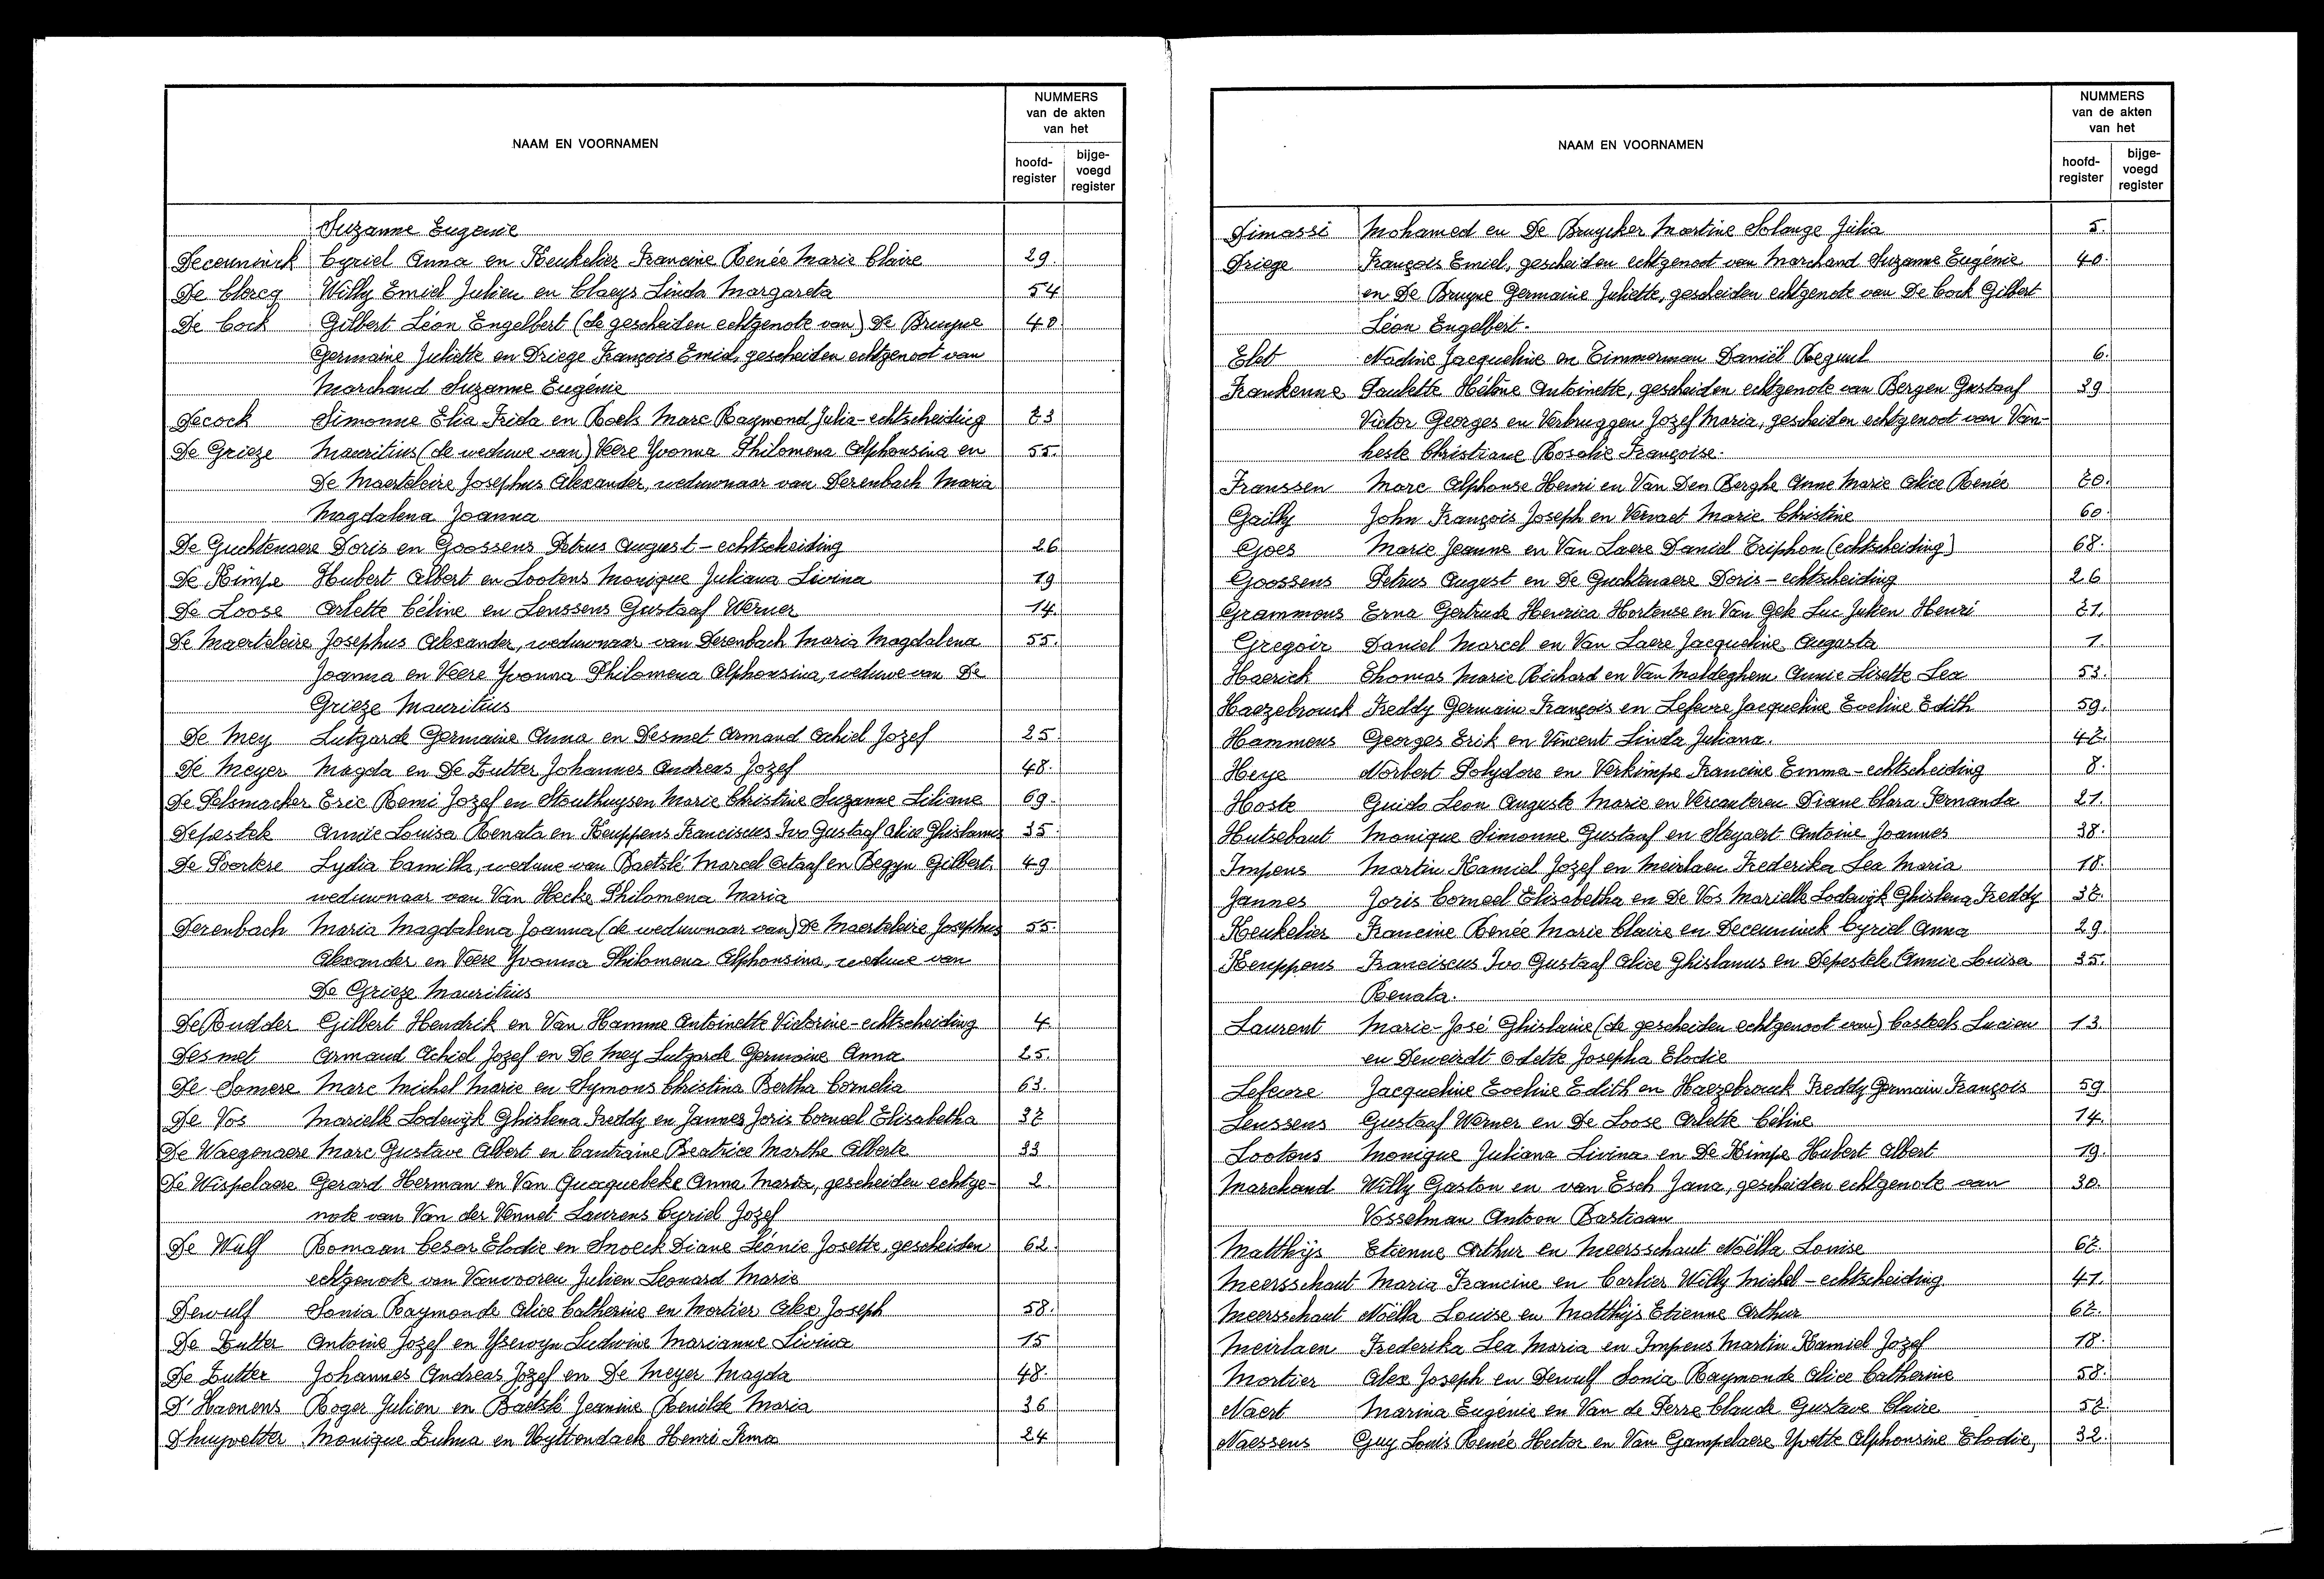 NAAM EN VOORNAMEN
NUMMERS
van de akten
van het
hoofd-
register
bijge-
voegd
register
Suzanne Eugenie
Deceuninck Cyriel Anna en Keukelier Francine Renée Marie Claire 29.
De Clercq Willy Emiel Julien en Claeys Linda Margareta 54
De Cock Gilbert Léon Engelbert (de gescheiden echtgenote van) De Bruyne 40
Germaine Juliette en Driege François Emiel, gescheiden echtgenoot van
Marchand Suzanne Eugénie
Decock Simonne Elia Frida en Roels Marc Raymond Julia - echtscheiding 73
De Grieze Mauritius (de weduwe van) Veere Yvonna Philomena Alphonsina en 55.
De Maerteleire Josephus Alexander, weduwnaar van Derenbach Maria
Magdalena Joanna
De Guchtenaere Doris en Goossens Petrus August - echtscheiding 26
De Kimpe Hubert Albert en Lootens Monique Juliana Livina 19
De Loose Arlette Céline en Lenssens Gustaaf Werner 14.
De Maerteleire Josephus Alexander, weduwnaar van Derenbach Maria Magdalena 55.
Joanna en Veere Yvonna Philomena Alphonsina, weduwe van De
Grieze Mauritius
De Mey Lutgarde Germaine Anna en Desmet Armand Achiel Jozef 25.
De Meyer Magda en De Zutter Johannes Andreas Jozef 48.
De Pelsmacker Eric Remi Jozef en Stouthuysen Marie Christine Suzanne Liliane 69.
Depestele Annie Louisa Renata en Keuppens Franciscus Ivo Gustaaf Alice Ghislanus 35.
De Poortere Lydia Camilla, weduwe van Baetslé Marcel Octaaf en Begyn Gilbert, 49
weduwnaar van Van Hecke Philomena Maria
Derenbach Maria Magdalena Joanna (de weduwnaar van) De Maerteleire Josephus 55.
Alexander en Veere Yvonna Philomena Alphonsina, weduwe van
De Grieze Mauritius
De Rudder Gilbert Hendrik en Van Hamme Antoinette Victorine - echtscheiding 4.
Desmet Armand Achiel Jozef en De Mey Lutgarde Germaine Anna 25.
De Somere Marc Michel Marie en Symons Christina Bertha Cornelia 63.
De Vos Marielle Lodewijk Ghislena Freddy en Jannes Joris Corneel Elisabetha 37
De Waegenaere Marc Gustave Albert en Cantraine Beatrice Marthe Alberte 33
De Wispelaere Gerard Herman en Van Quaquebeke Anna Maria, gescheiden echtge- 2.
note van Van der Vennet Laurens Cyriel Jozef
De Wulf Romaan Cesar Elodie en Snoeck Diane Léonie Josette, gescheiden 62.
echtgenote van Vanvooren Julien Leonard Marie
Dewulf Sonia Raymonde Alice Catherine en Mortier Alex Joseph 58.
De Zutter Antoine Jozef en Yserwyn Ludwine Marianne Livina 15
De Zutter Johannes Andreas Jozef en De Meyer Magda 48.
D'Haenens Roger Julien en Baetslé Jeanine Renilde Maria 36
Dhuyvetter Monique Zulma en Uyttendaele Henri Irma 24
NAAM EN VOORNAMEN
NUMMERS
van de akten
van het
hoofd-
register
bijge-
voegd
register
Dimassi Mohamed en De Bruycker Martine Solange Julia 5.
Driege François Emiel, gescheiden echtgenoot van Marchand Suzanne Eugénie 40.
en De Bruyne Germaine Juliette, gescheiden echtgenote van De Cock Gilbert
Léon Engelbert.
Elet Nadine Jacqueline en Timmerman Daniël Regnul 6.
Frankenne Paulette Hélène Antoinette, gescheiden echtgenote van Bergen Gustaaf 39
Victor Georges en Verbruggen Jozef Maria, gescheiden echtgenoot van Van-
heste Christiane Rosalie Françoise.
Franssen Marc Alphonse Henri en Van Den Berghe Anne Marie Alice Renée 70.
Gailly John François Joseph en Vervaet Marie Christine 60.
Goes Marie Jeanne en Van Laere Daniel Triphon (echtscheiding) 68.
Goossens Petrus August en De Guchtenaere Doris - echtscheiding 26
Grammens Erna Gertrude Henrica Hortense en Van Gele Luc Julien Henri 71.
Gregoir Daniel Marcel en Van Laere Jacqueline Augusta 1.
Haerick Thomas Marie Richard en Van Maldeghem Annie Lisette Lea 53.
Haezebrouck Freddy Germain François en Lefevre Jacqueline Eveline Edith 59.
Hammens Georges Erik en Vincent Linda Juliana. 47.
Heye Norbert Polydore en Verkimpe Francine Emma - echtscheiding 8.
Hoste Guido Leon Auguste Marie en Vercauteren Diane Clara Fernanda 21.
Hutsebaut Monique Simonne Gustaaf en Steyaert Antoine Joannes 38.
Impens Martin Kamiel Jozef en Meirlaen Frederika Lea Maria 18.
Jannes Joris Corneel Elisabetha en De Vos Marielle Lodewijk Ghislena Freddy 37.
Keukelier Francine Renée Marie Claire en Deceuninck Cyriel Anna 29.
Keuppens Franciscus Ivo Gustaaf Alice Ghislanus en Depestele Annie Louisa 35.
Renata.
Laurent Marie-José Ghislaine (de gescheiden echtgenoot van) Casteels Lucien 13.
en Deweirdt Odette Josepha Elodie
Lefevre Jacqueline Eveline Edith en Haezebrouck Freddy Germain François 59
Lenssens Gustaaf Werner en De Loose Arlette Céline 14.
Lootens Monique Juliana Livina en De Kimpe Hubert Albert 19.
Marchand Willy Gaston en van Esch Jana, gescheiden echtgenote van 30.
Vosselman Antoon Bastiaan
Matthijs Etienne Arthur en Meersschaut Noëlla Louise 67.
Meersschaut Maria Francine en Carlier Willy Michel - echtscheiding 41.
Meersschaut Noëlla Louise en Matthijs Etienne Arthur 67.
Meirlaen Frederika Lea Maria en Impens Martin Kamiel Jozef 18.
Mortier Alex Joseph en Dewulf Sonia Raymonde Alice Catherine 58.
Naert Marina Eugénie en Van de Perre Claude Gustave Claire 57.
Naessens Guy Louis Renée Hector en Van Gampelaere Yvette Alphonsine Elodie, 32.